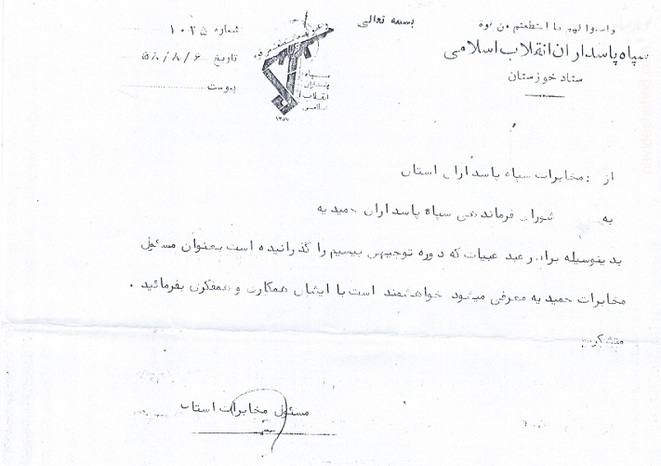 بسمه تعالی
واعدوا لهم ما استطعتم من قوة
سپاه پاسداران انقلاب اسلامی
ستاد خوزستان
شماره ۱۰۲۵
تاریخ ۵۸/۸/۶
پیوست
سپاه
پاسداران
انقلاب
اسلامی
۱۳۵۷
از : مخابرات سپاه پاسداران استان
به شورای فرماندهی سپاه پاسداران حمیدیه
بدینوسیله برادر عبد عبیات که دوره توجیهی بیسیم را گذرانیده است بعنوان مسئول
مخابرات حمیدیه معرفی میشود خواهشمند است با ایشان همکاری و همفکری بفرمائید .
متشکریم
مسئول مخابرات استان